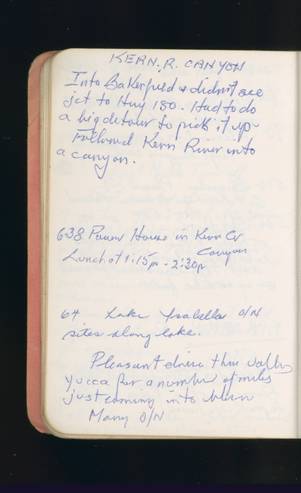 KERN. R. CANYON
Into Bakersfield & didn't see
jct to Hwy 180. Had to do
a big detour to pick it up.
Followed Kern River into
a canyon.
638 Power House in Kern Cr
Canyon
Lunch at 1:15p - 2:30p
64 Lake Isabella O/N
sites along lake.
Pleasant drive thru valley
yucca for a number of miles
just coming into bloom
Many O/N